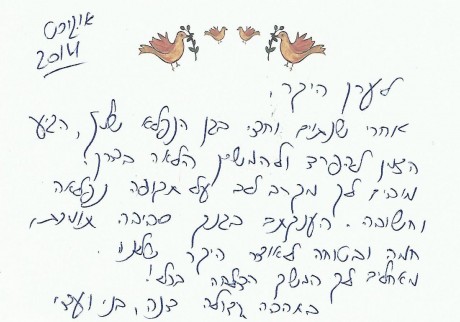 אוגוסט
2014
לערן היקר,
אחרי שנתיים וחצי בגן הנפלא שלך, הגיע
הזמן להיפרד ולהמשיך הלאה בדרך.
מודים לך מקרב לב על תקופה נפלאה
וחשובה. הענקתם בגנך סביבה תומכת,
חמה ובטוחה לאוצר היקר שלנו.
מאחלים לך המשך הצלחה בכל!
באהבה גדולה דנה, בני ועדי